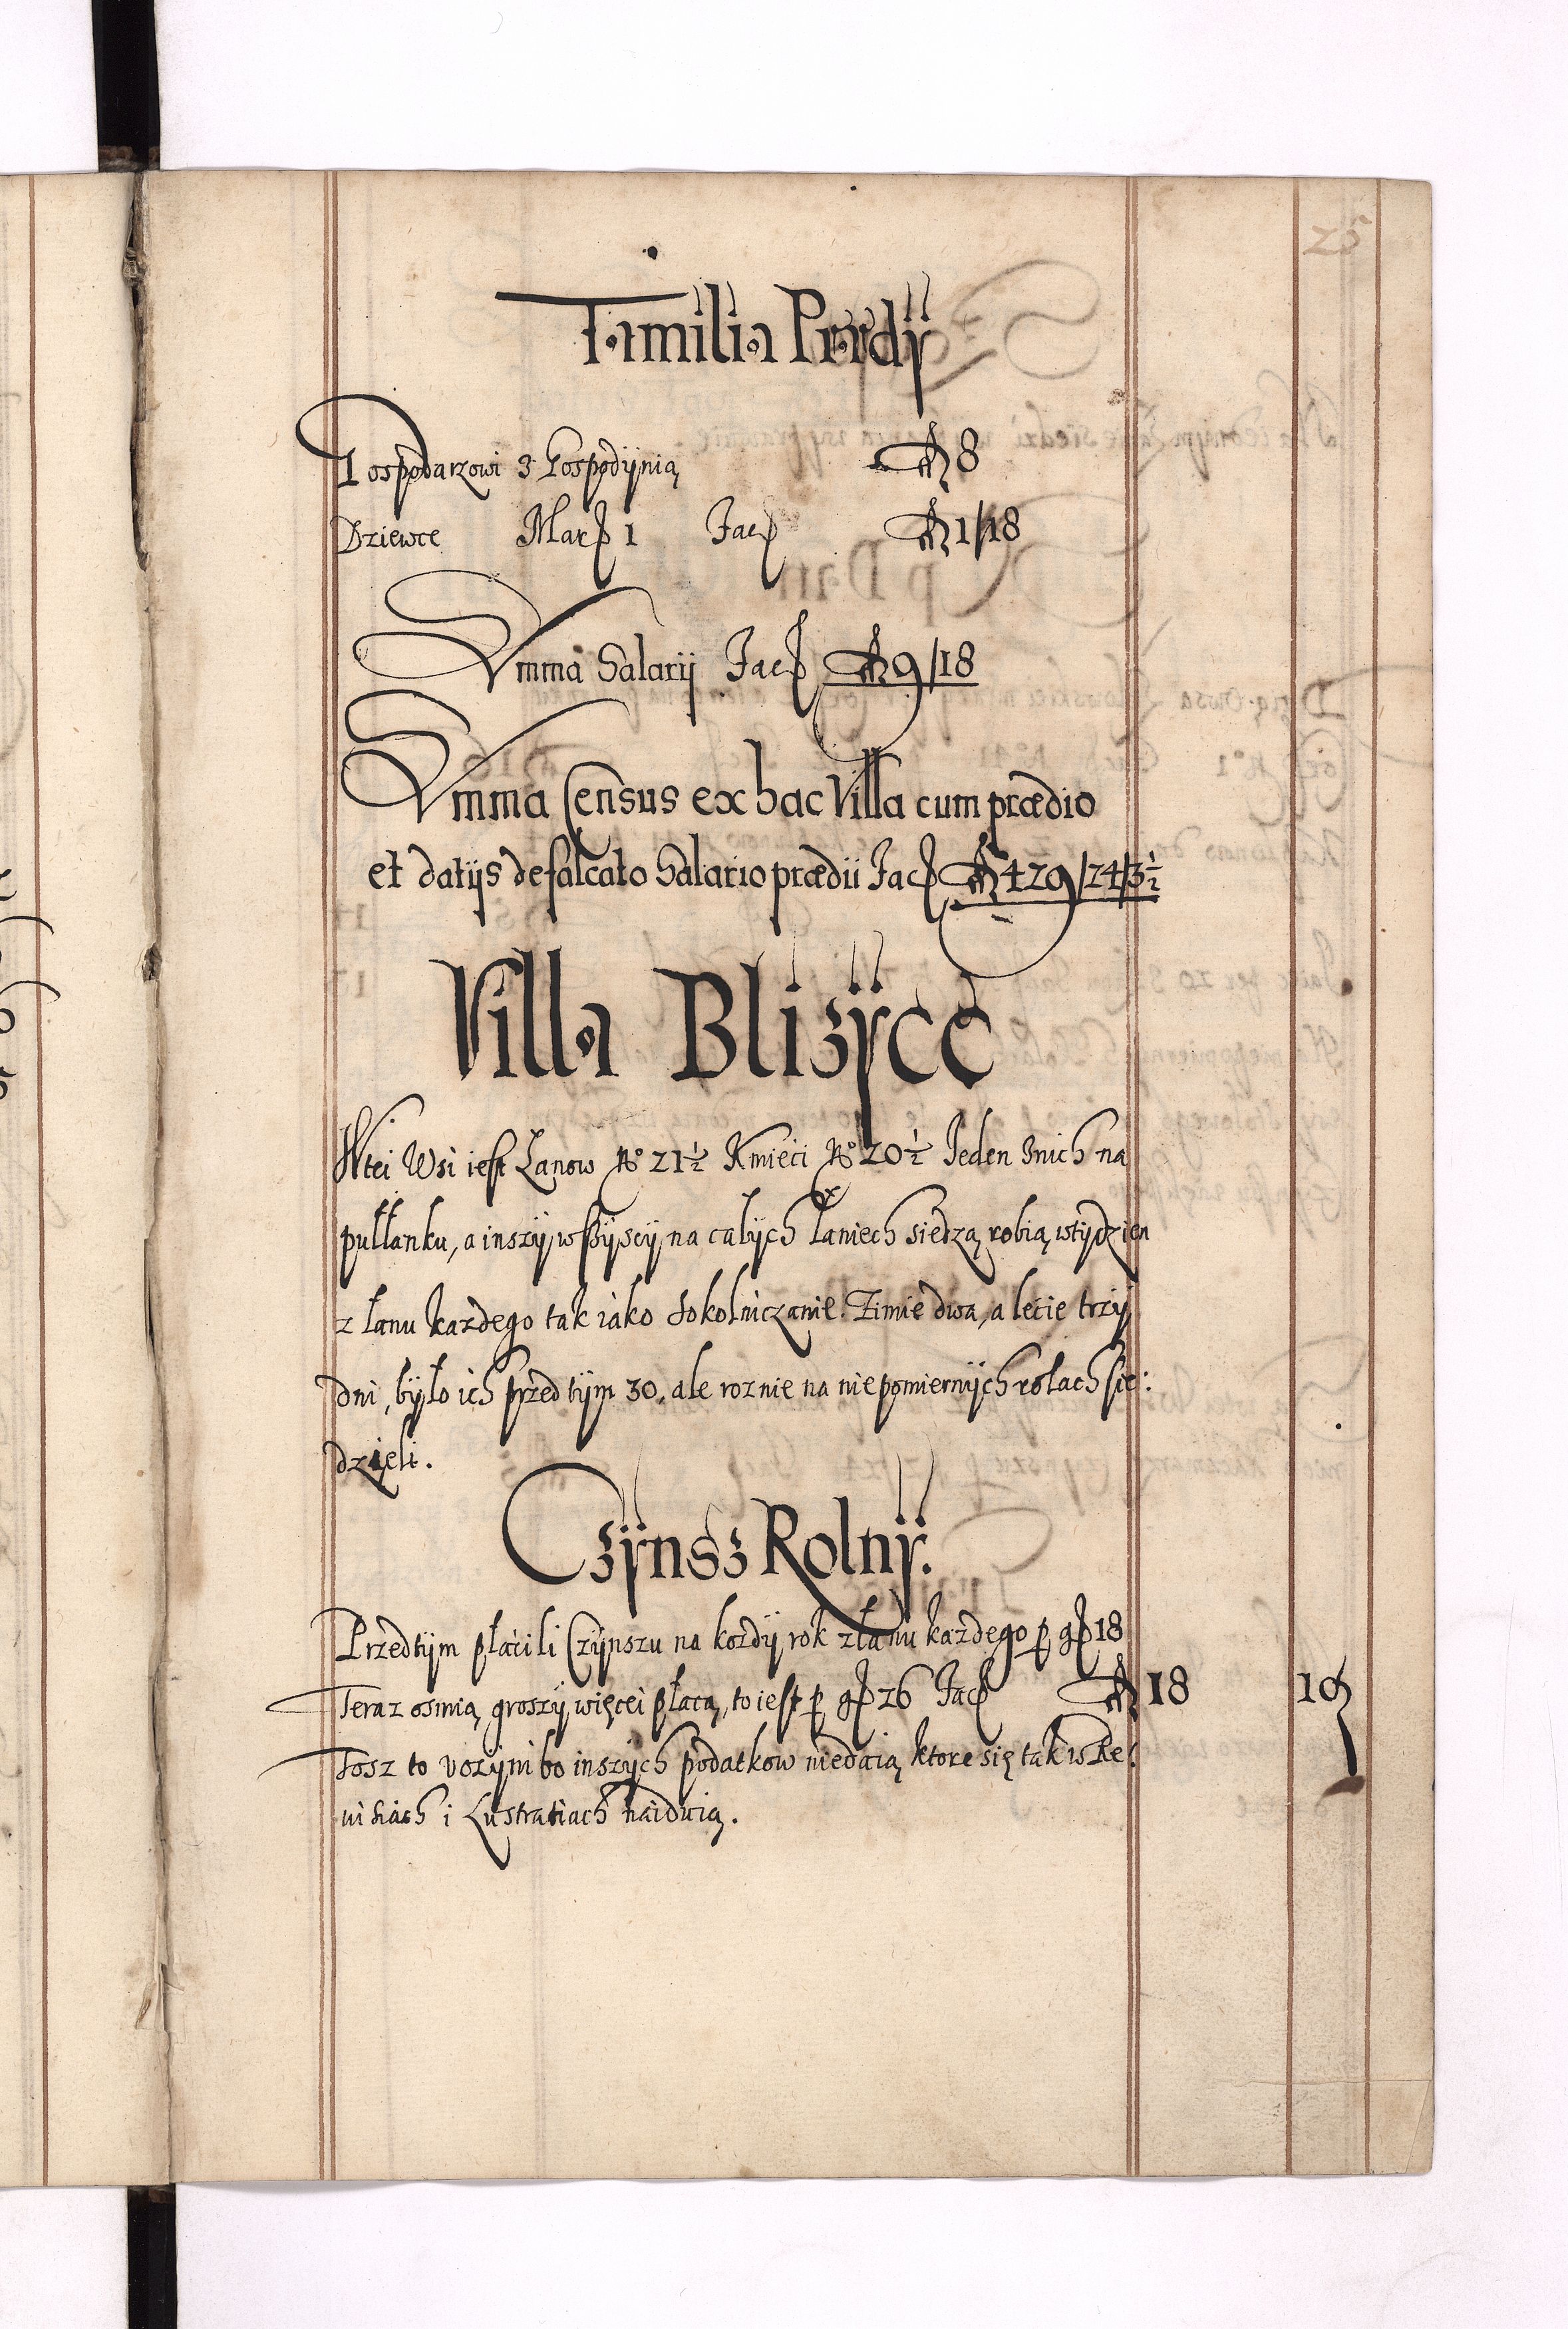 25
Familia Prædÿ
Gospodarzowi z Gospodÿnią fl 8
Dziewce Marß 1 Facß fl 1/18
Summa Salarÿ Facß fl 9/18
Summa Census ex hac Villa cum prædio
et datÿs defalcato Salario prædii Facß fl 429/24/3½
Villa Blizÿce
Wtei Wsi iest Łanow No 21½ Kmieci No 20½ Jeden znich na
pułłanku, a inszÿ wßÿscÿ na całÿch łaniech siedzą robią wtÿdzien
z łanu kazdego tak iako Sokolniczanie. Zimie dwa, a lecie trzÿ
dni, bÿło ich przed tÿm 30, ale roznie na niepomiernÿch rolach sie:
dzieli.
Czÿnsz Rolnÿ.
Przedtÿm płacili Czÿnszu na kozdÿ rok złanu kazdego p gß 18
Teraz osmią groszÿ więcei płacą, to iest p gß 26 Facß fl 18 19
Tosz to vozÿni bo inszÿch podatkow niedaią ktore się tak w Re:
wisiach i Lustratiach naiduią.